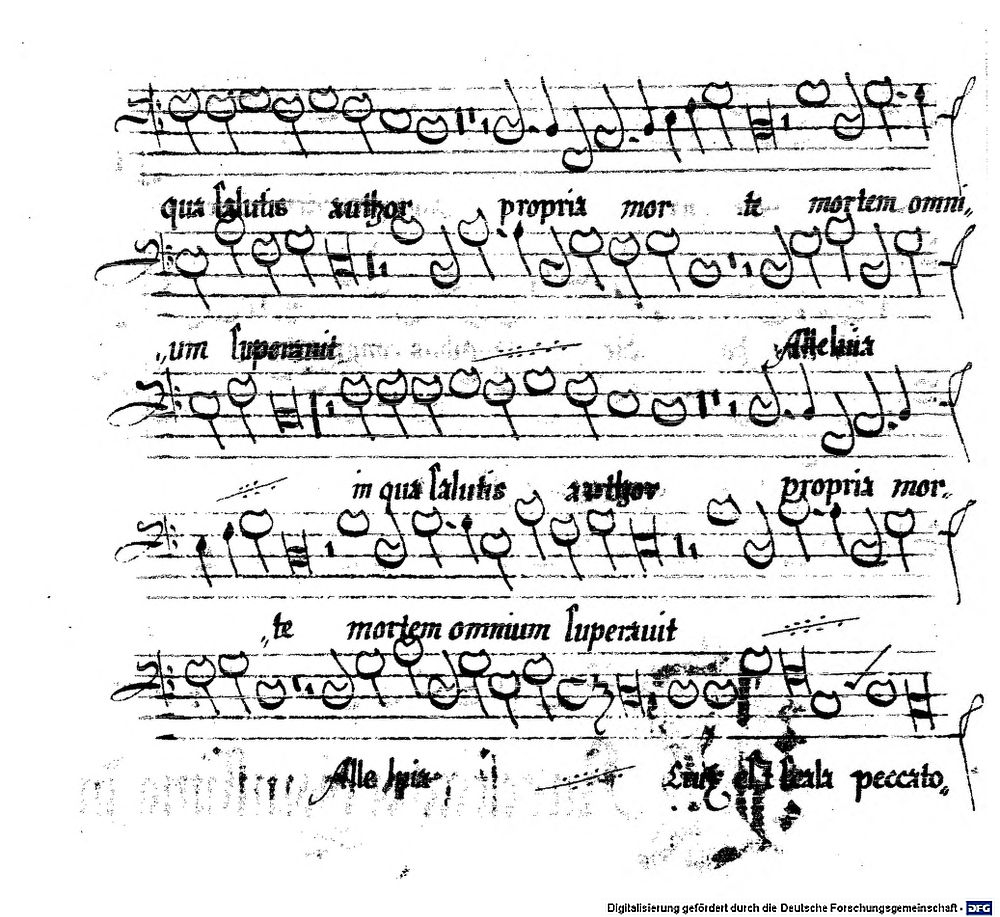 qua salutis author propria mor te mortem omni„
„um superauit Alleluia
in qua salutis author propria mor„
„te mortem omnium superauit
Alle luia est scala peccato„
Digitalisierung gefördert durch die Deutsche Forschungsgemeinschaft - DFG